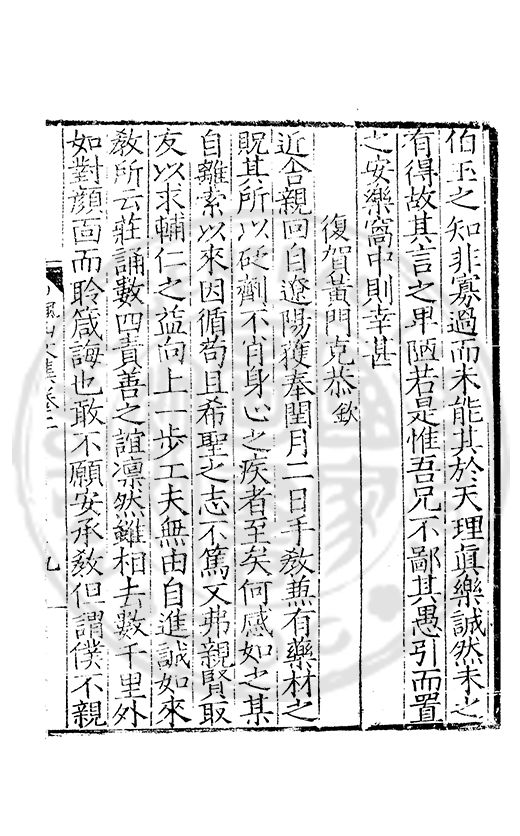 伯玉之知非寡過而未能其於天理眞樂誠然未之
有得故其言之卑陋若是惟吾兄不鄙其愚引而置
之安樂窩中則幸甚
復賀黃門克恭欽
近舍親回自遼陽獲奉閏月二日手敎兼有藥材之
貺其所以砭劑不肖身心之疾者至矣何感如之某
自離索以來因循苟且希聖之志不篤又弗親賢取
友以求輔仁之益向上一步工夫無由自進誠如來
敎所云莊誦數四責善之誼凛然雖相去數千里外
如對顏面而聆箴誨也敢不願安承敎但謂僕不親
九